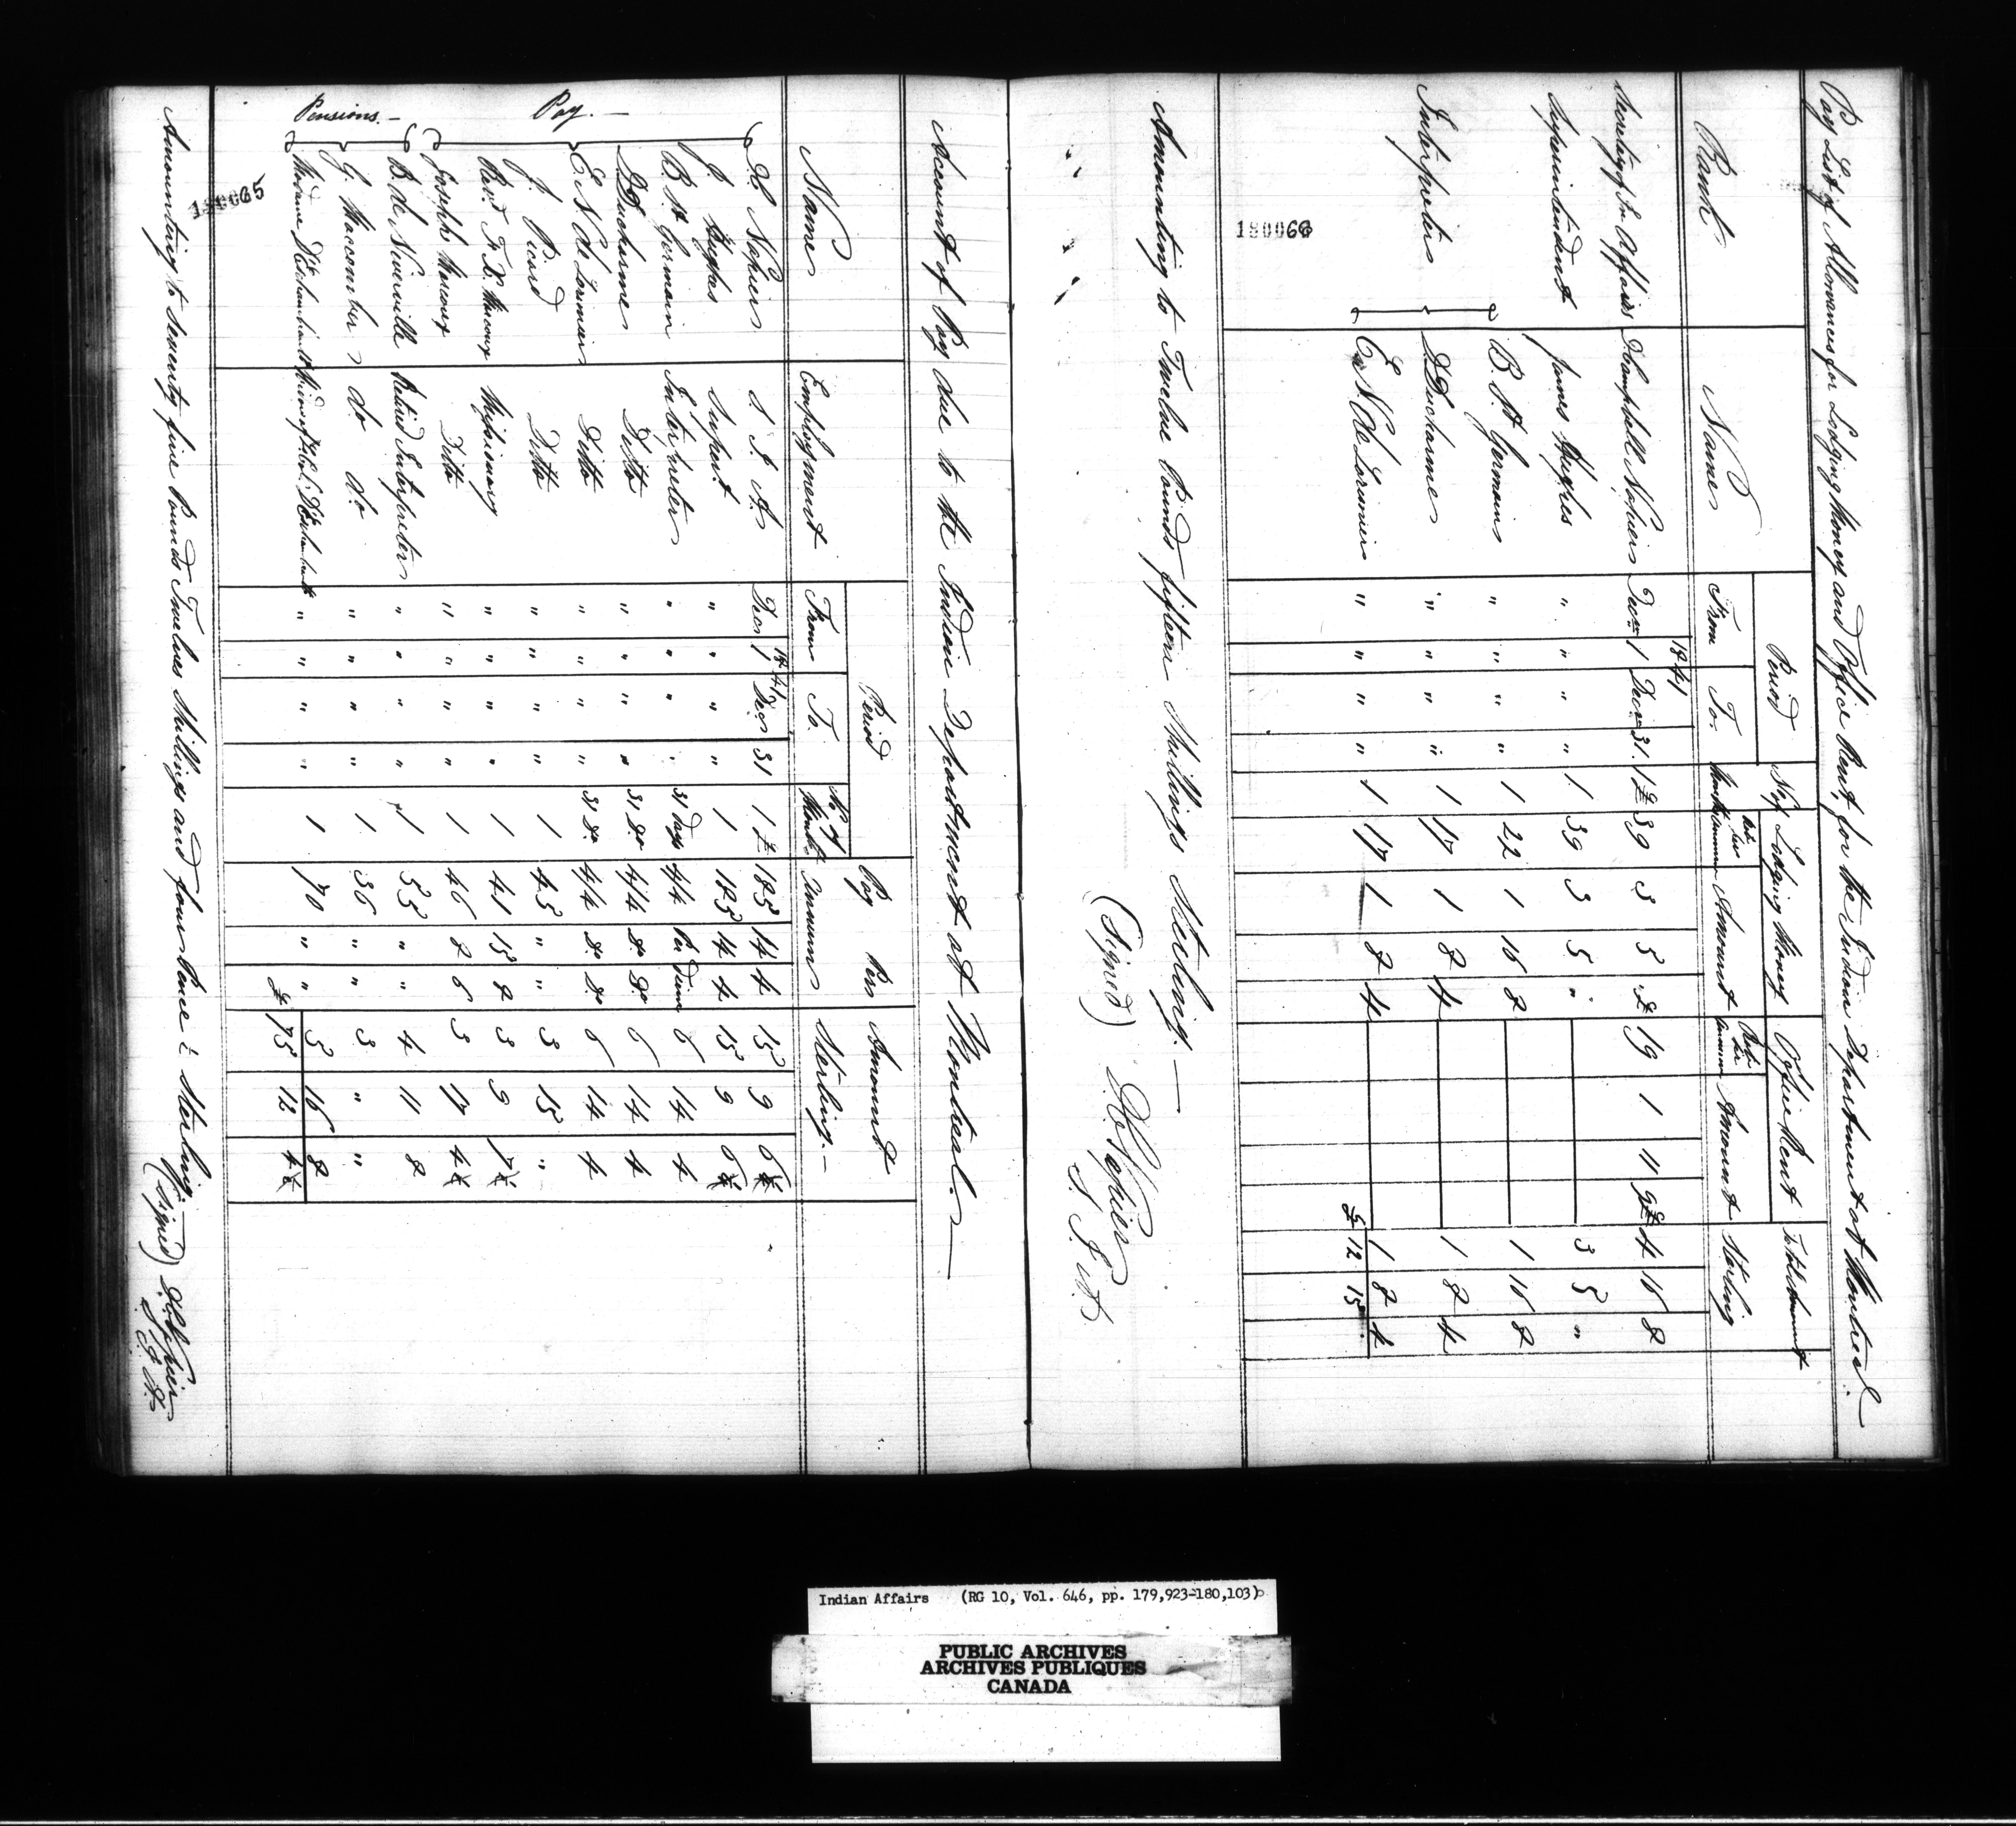 Pay List of Allowances for Lodging Money and Office Rent for the Indian Department at Montreal.
Rank Name Period No of Months Lodging Money Office Rent Total Amount Sterling
From To Rate per Annum Amount Rate per Annum Amount
1841
Secretary for In. Affairs D. Campbell Napier Decr 1 Decr 31 1 £ 39 3 5 " £ 19 1 11 8 £ 4 16 8
Superintendent James Hughes " " " " 1 39 3 5 " 3 5 "
Interpreters B. St Germain " " " " 1 22 1 16 8 1 16 8
D. Ducharme " " " " 1 17 1 8 4 1 8 4
E. N. de Lorimier " " " " 1 17 1 8 4 1 8 4
£ 12 15 "
180066
Amounting to Twelve Pounds fifteen Shillings Sterling.—
(Signed) D. C. Napier
S. I. A.
Account of Pay due to the Indian Department at Montreal.—
Name Employment Period No of Months Pay Per Annum Amount Sterling.—
From To
1841
Pay.—
D. C. Napier S. I. A. Decr 1 Decr 31 1 £ 185 14 4 15 9 6
J. Hughes Supert " " " " 1 185 14 4 15 9 6
B. St Germain Interpreter " " " " 31 days 4/4 Per Diem 6 14 4
D. Ducharme Ditto " " " " 31 Do 4/4 Do Do 6 14 4
E. N. de Lorimier Ditto " " " " 31 Do 4/4 Do Do 6 14 4
J. Picard Ditto " " " " 1 45 " " 3 15 "
Revd F. X. Marcoux Missionary " " " " 1 41 15 8 3 9 7
Joseph Marcoux Ditto " " " " 1 46 8 6 3 17 4
Pensions.—
B. de Niverville Retired Interpreter " " " " 1 55 " " 4 11 8
G. Maccomber do do " " " " 1 36 " " 3 " "
Madame D'Eschambault " " " " 1 70 " " 5 16 8
£ 75 12 4
180065
Amounting to seventy five Pounds Twelve Shillings and four Pence Sterling.
(Signed) D. C. Napier
S. I. A.
Indian Affairs (RG 10, Vol. 646, pp. 179,923-180,103)
PUBLIC ARCHIVES
ARCHIVES PUBLIQUES
CANADA